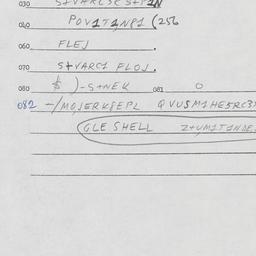 030 S+VARC3C S+P1N
040 POV1T1NP1 (256
060 FLEJ .
070 S+VARC1 FLOJ.
080 $ )-S+NEK 081 O
082 -/MOJERK8EPL QVUSM1HE5RC3
GLE SHELL Z+UM1TANDE